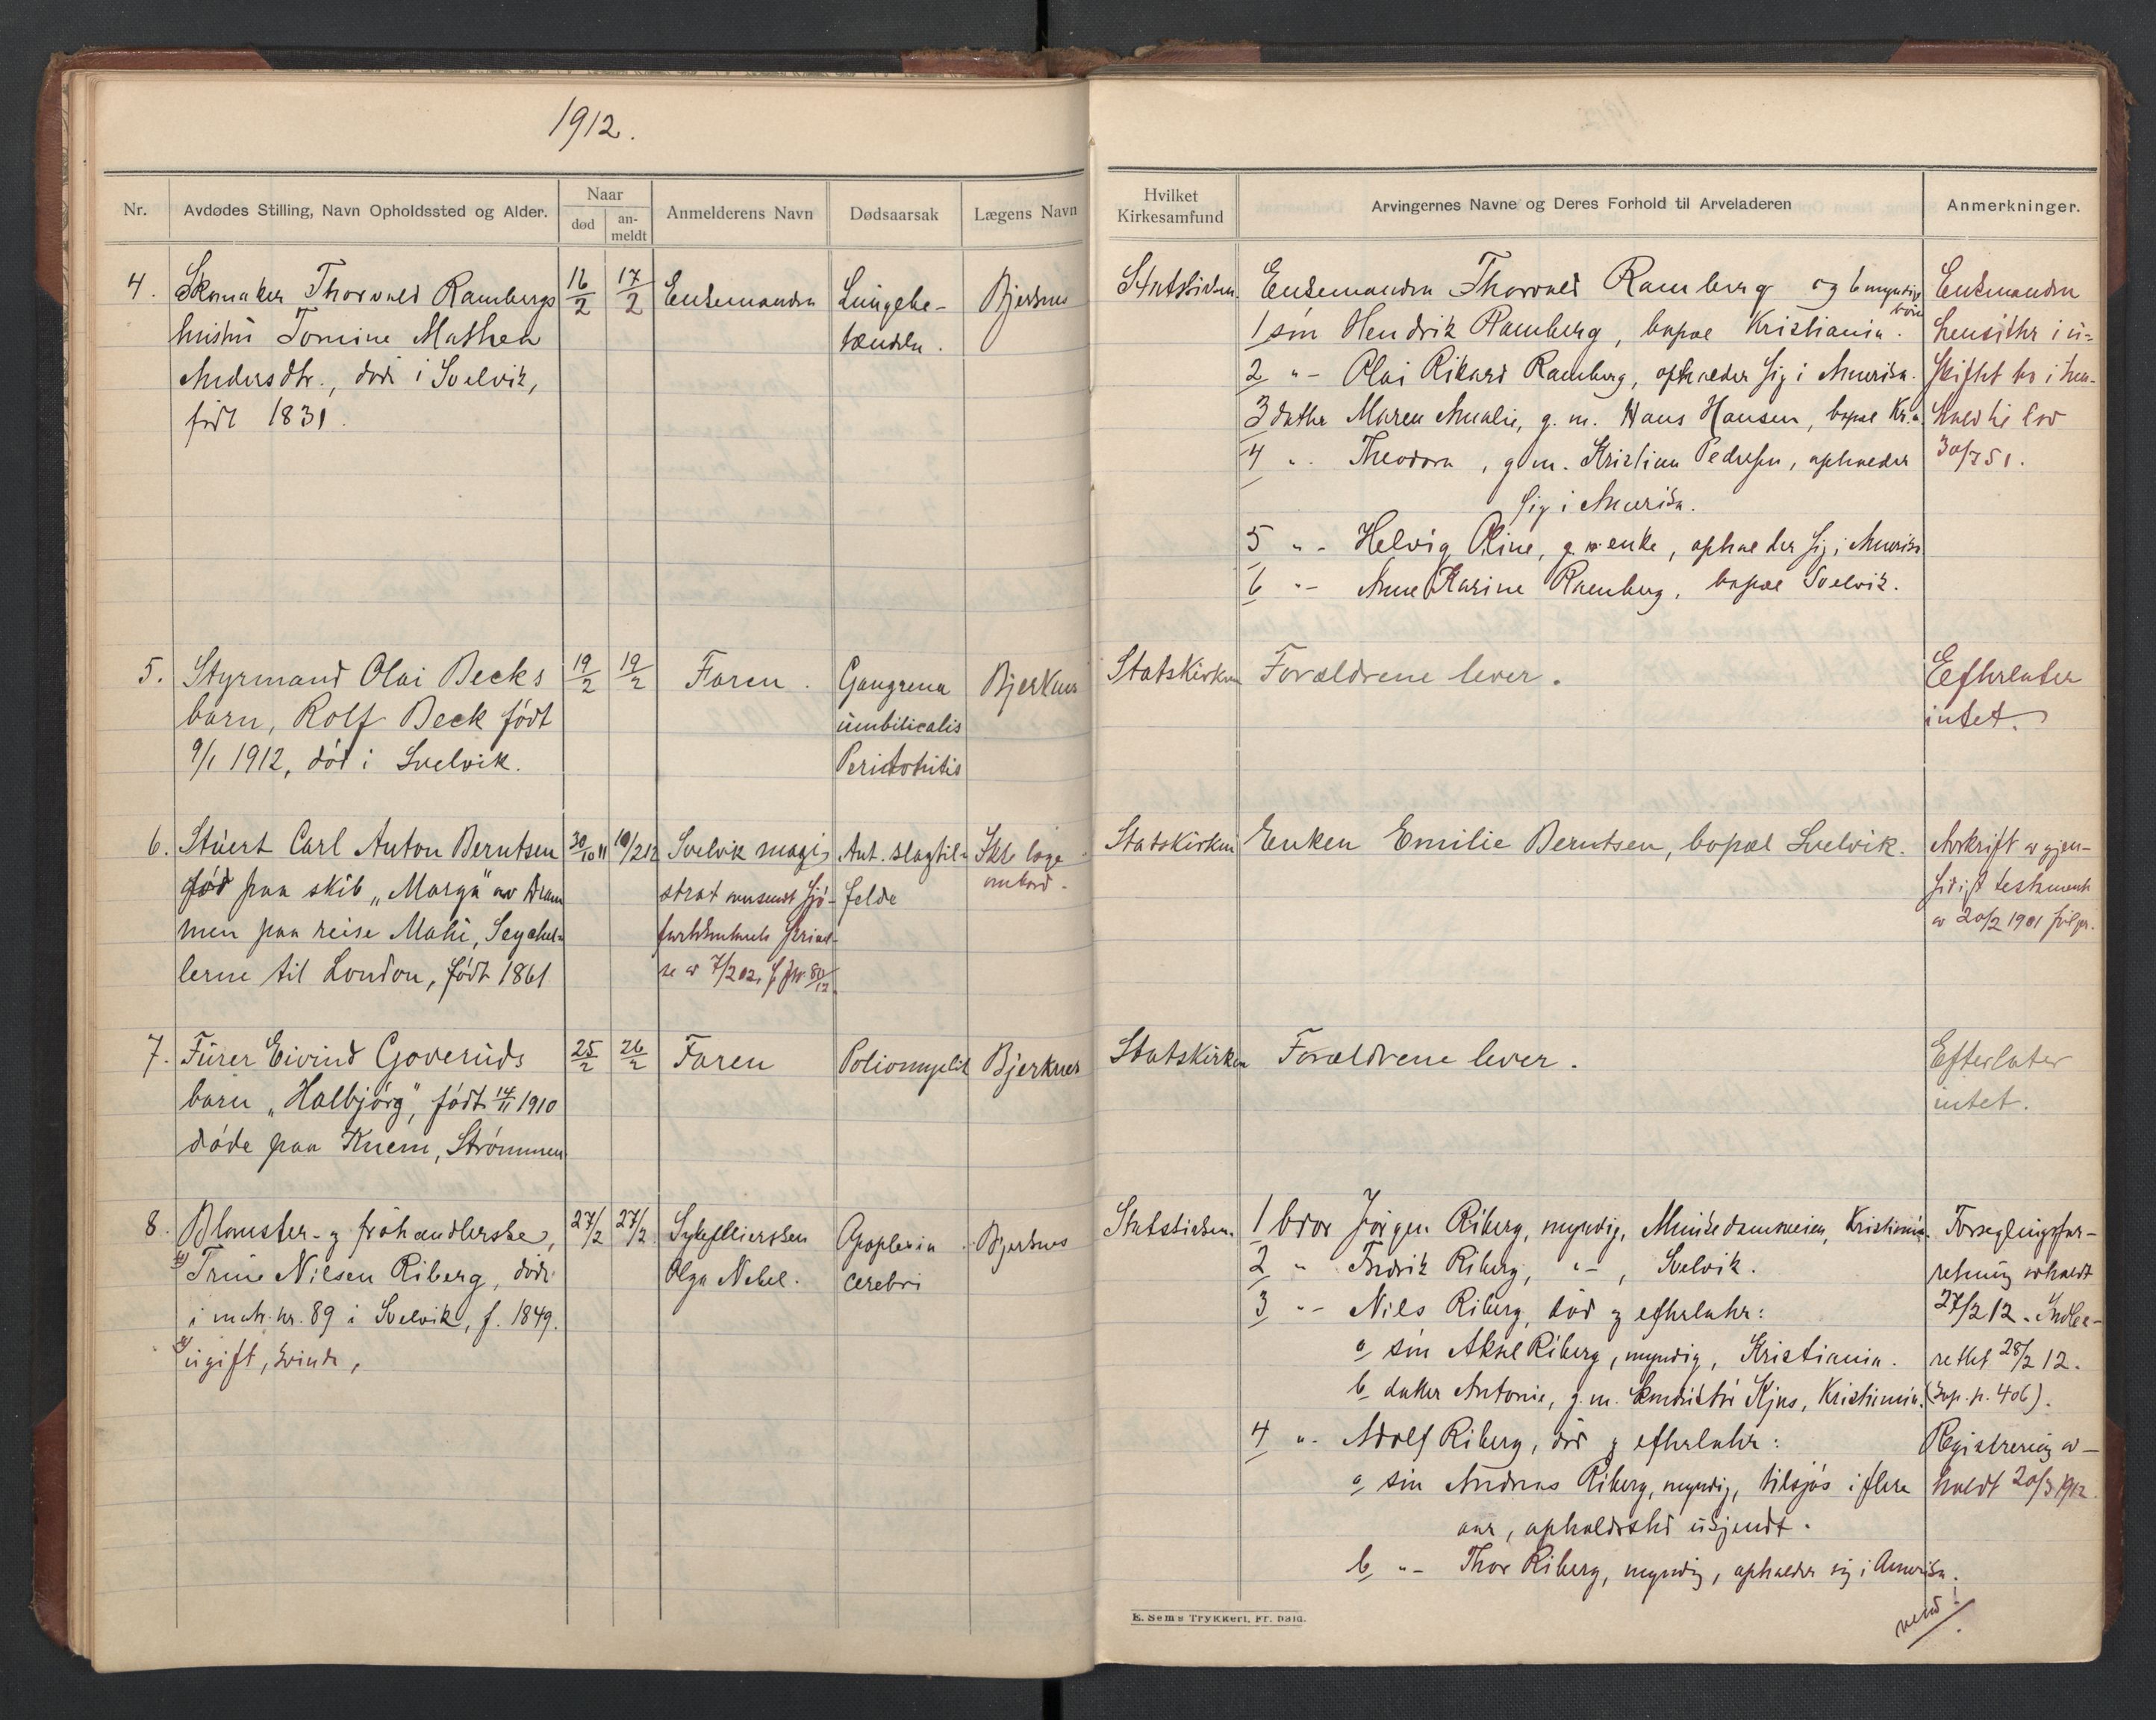 1912.
Nr.
Avdødes Stilling, Navn Opholdssted og Alder.
Naar
død
an-
meldt
Anmelderens Navn
Dødsaarsak
Lægens Navn
Hvilket
Kirkesamfund
Arvingernes Navne og Deres Forhold til Arveladeren
Anmerkninger.
4. Skomaker Thorvald Rambergs
hustru Tomine Mathea
Andersdtr., död i Svelvik,
född 1831.
16/2
17/2
Enkemanden
Lungebe-
tændelse.
Bjerknes
Statskirken
Enkemanden Thorvald Ramberg og 6 myndige
börn
1 sön Hendrik Ramberg, bopæl Kristiania.
2 " - Olai Rikard Ramberg, opholder sig i Amerika.
3 datter Maren Amalie, g. m. Hans Hansen, bopæl Kr.a
4 " - Theodora, g. m. Kristian Pedersen, opholder
sig i Amerika.
5 " - Helvig Oline, enke, opholder sig i Amerika
6 " - Anne Karine Ramberg, bopæl Svelvik.
Enkemanden
hensitter i u-
skiftet bo i hen-
hold til lov
30/7 51.
5. Styrmand Olai Becks
barn, Rolf Beck født
9/1 1912, död i Svelvik.
19/2
19/2
Faren.
Gangrena
umbilicalis
Peritonitis
Bjerknes
Statskirken
Forældrene lever.
Efterlater
intet.
6. Stuert Carl Anton Berntsen
död paa skib „Marga" av Dram
men paa reise Mahé, Seychel-
lerne til London, födt 1861
30/10 11
10/2 12
Svelvik magi-
strat
Ant. slagtil-
felde
ombord.
Statskirken
Enken Emilie Berntsen, bopæl Svelvik.
Avskrift av gjen-
sidigt testament
av 20/2 1901
7. Furer Eivind Goveruds
barn „Halbjörg", födt 14/11 1910
döde paa Knem, Strömmen
25/2
26/2
Faren
Poliomyelit
Bjerknes
Statskirken
Forældrene lever.
Efterlater
intet.
8. Blomster- og fröhandlerske,
Trine Nilsen Riberg, död
i matr. nr. 89 i Svelvik, f. 1849.
ugift, kvinde,
27/2
27/2
Sykepleiersken
Olga Nebel.
Apoplexia
cerebri
Bjerknes
Statskirken.
1 bror Jörgen Riberg, myndig, Munkedamsveien, Kristiania
2 " Fredrik Riberg, " - , Svelvik.
3 " - Nils Riberg, död og efterlater:
a sön Aksel Riberg, myndig, Kristiania.
b datter Antonie, g. m. Kjus, Kristiania.
4 " - Adolf Riberg, död og efterlater:
a sön Andreas Riberg, myndig, tilsjös i flere
aar, opholdssted ukjendt.
b " - Thor Riberg, myndig, opholder sig i Amerika.
vend!
Forseglingsfor-
retning avholdt
27/2 12. Indbe-
rettet 28/2 12.
(Kop. p. 406).
Registrering av-
holdt 20/3 1912.
E. Sems Trykkeri, Fr.hald.